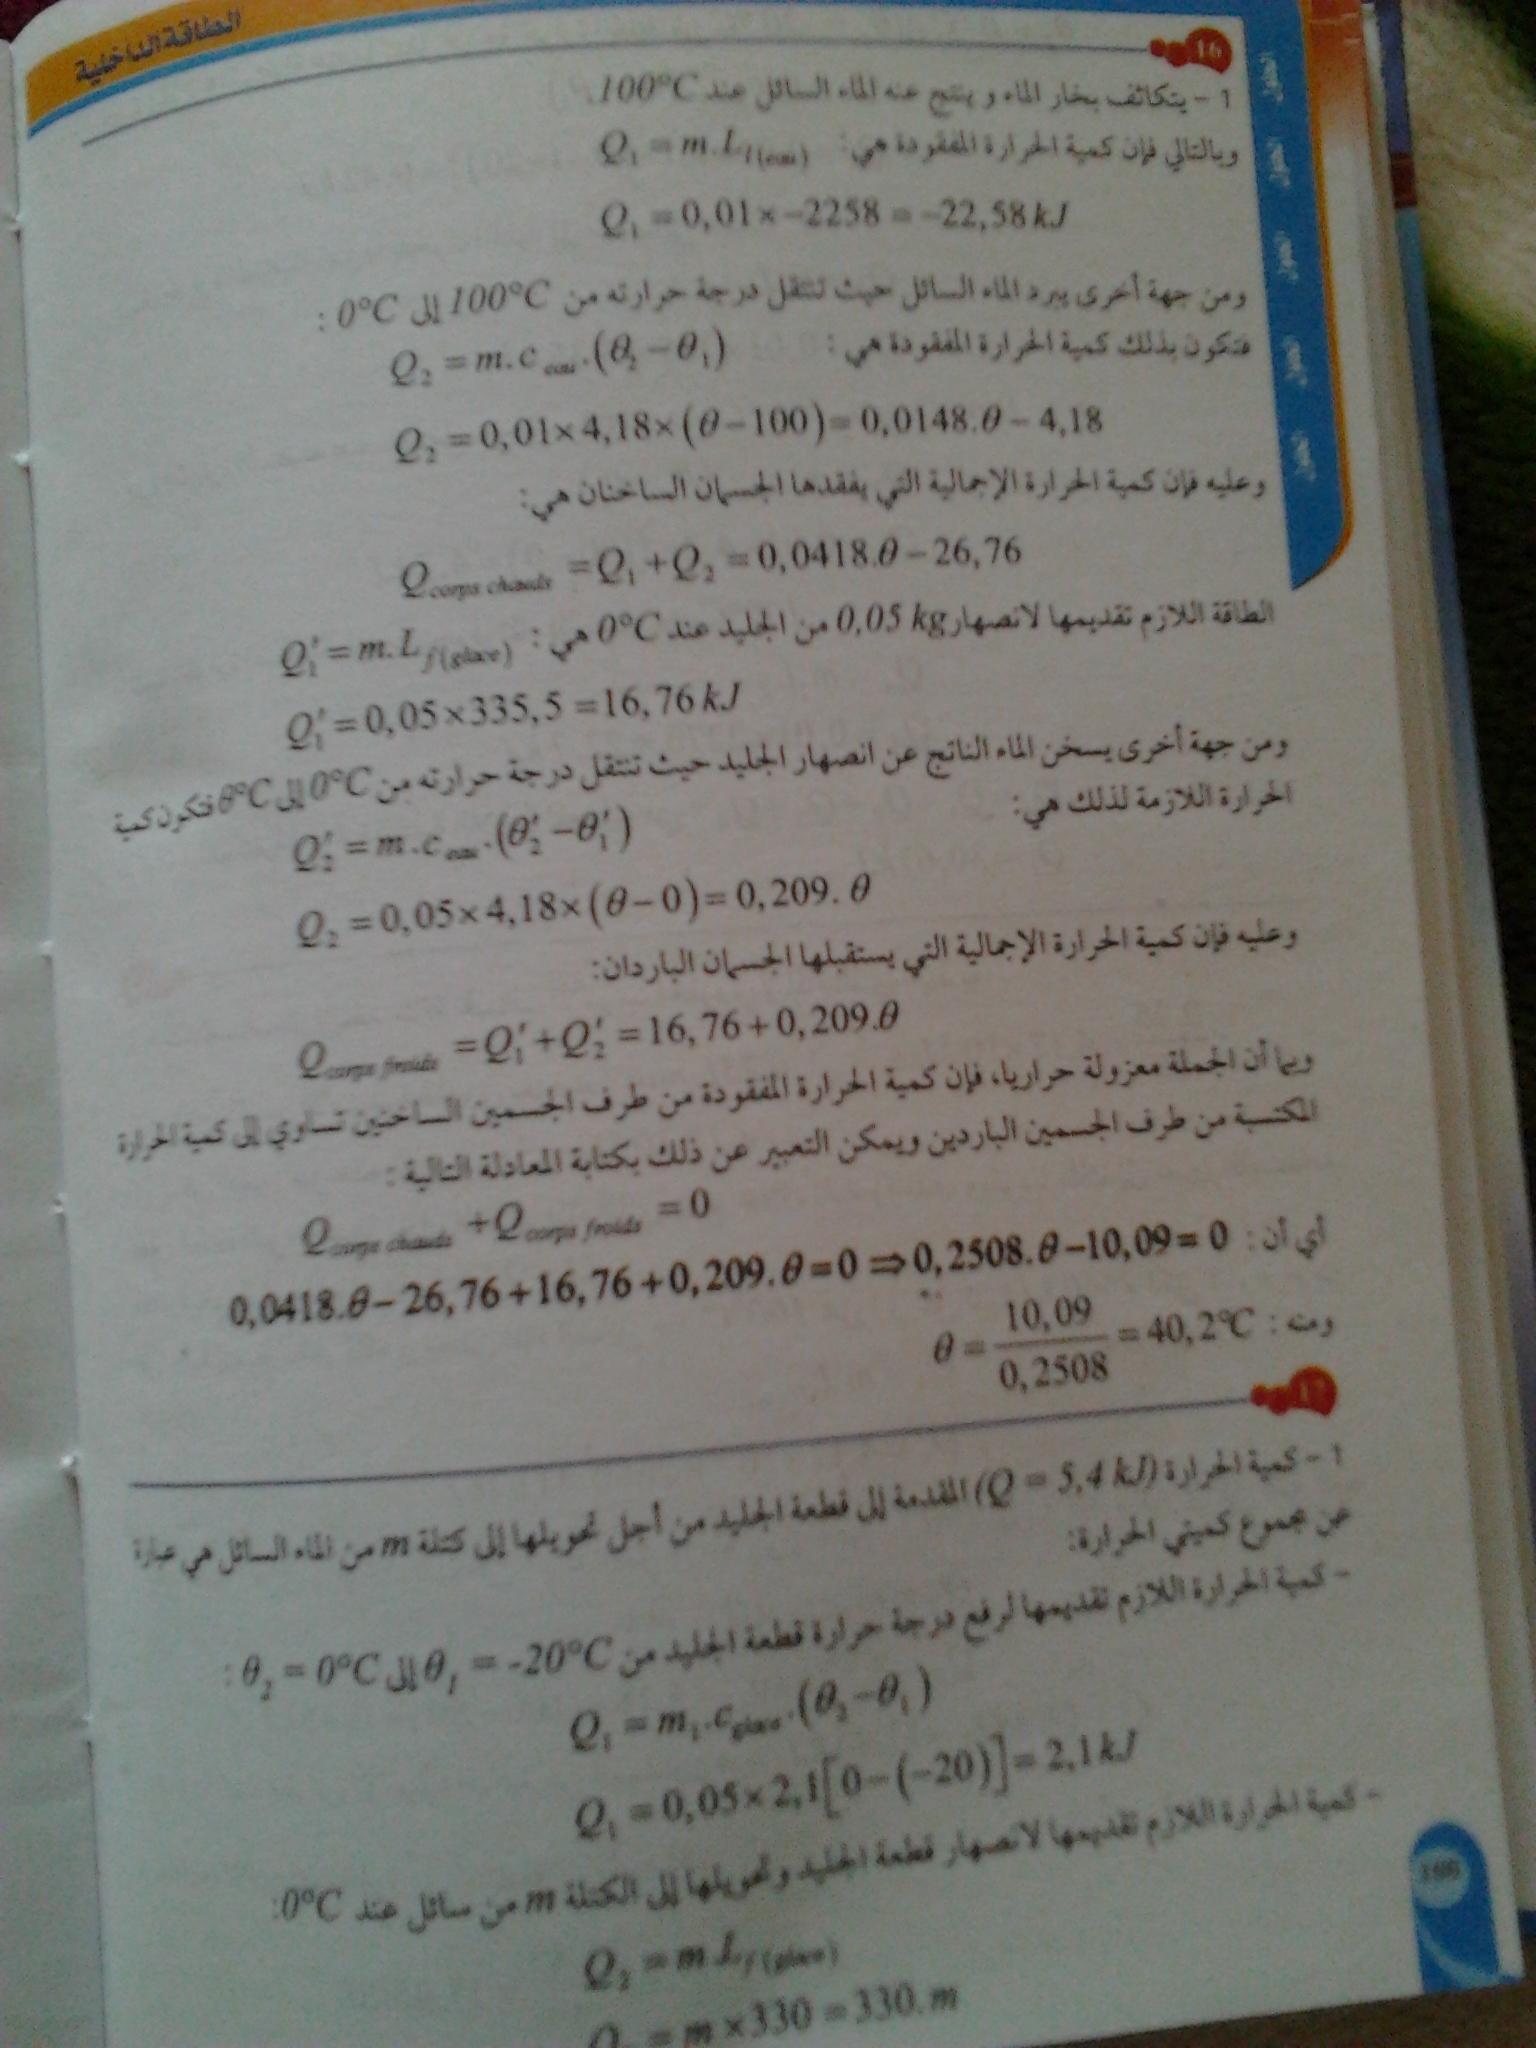 الطاقة الداخلية
16
1 - يتكاثف بخار الماء و ينتج عنه الماء السائل عند 100°C.
وبالتالي فإن كمية الحرارة المفقودة هي: Q₁ = m.L_l(eau)
Q₁ = 0,01×−2258 = −22,58 kJ
ومن جهة أخرى يبرد الماء السائل حيث تنتقل درجة حرارته من 100°C إلى 0°C :
فتكون بذلك كمية الحرارة المفقودة هي : Q₂ = m.c_eau.(θ₂ − θ₁)
Q₂ = 0,01×4,18×(θ−100) = 0,0148.θ − 4,18
وعليه فإن كمية الحرارة الإجمالية التي يفقدها الجسمان الساخنان هي:
Q_corps chauds = Q₁ + Q₂ = 0,0418.θ − 26,76
الطاقة اللازم تقديمها لانصهار 0,05 kg من الجليد عند 0°C هي : Q′₁ = m.L_f(glace)
Q′₁ = 0,05×335,5 = 16,76 kJ
ومن جهة أخرى يسخن الماء الناتج عن انصهار الجليد حيث تنتقل درجة حرارته من 0°C إلى θ°C فتكون كمية
الحرارة اللازمة لذلك هي: Q′₂ = m.c_eau.(θ′₂ − θ′₁)
Q₂ = 0,05×4,18×(θ−0) = 0,209. θ
وعليه فإن كمية الحرارة الإجمالية التي يستقبلها الجسمان الباردان:
Q_corps froids = Q′₁ + Q′₂ = 16,76 + 0,209.θ
وبما أن الجملة معزولة حراريا، فإن كمية الحرارة المفقودة من طرف الجسمين الساخنين تساوي إلى كمية الحرارة
المكتسبة من طرف الجسمين الباردين ويمكن التعبير عن ذلك بكتابة المعادلة التالية :
Q_corps chauds + Q_corps froids = 0
أي أن : 0,0418.θ − 26,76 + 16,76 + 0,209.θ = 0 ⇒ 0,2508.θ − 10,09 = 0
ومنه : θ = 10,09 / 0,2508 = 40,2°C
17
1 - كمية الحرارة (Q = 5,4 kJ) المقدمة إلى قطعة الجليد من أجل تحويلها إلى كتلة m من الماء السائل هي عبارة
عن مجموع كميتي الحرارة:
- كمية الحرارة اللازم تقديمها لرفع درجة حرارة قطعة الجليد من θ₁ = -20°C إلى θ₂ = 0°C :
Q₁ = m₁.c_glace.(θ₂ − θ₁)
Q₁ = 0,05×2,1[0−(−20)] = 2,1 kJ
- كمية الحرارة اللازم تقديمها لانصهار قطعة الجليد وتحويلها إلى الكتلة m من سائل عند 0°C:
Q₂ = m.L_f(glace)
= m×330 = 330.m